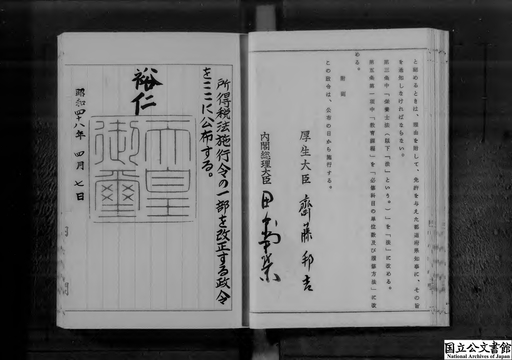 と認めるときは、理由を附して、免許を与えた都道府県知事に、その旨
を通知しなければならない。
第三条中「栄養士法(以下「法」という。)」を「法」に改める。
第五条第一項中「教育課程」を「必修科目の単位数及び履修方法」に改
める。
附則
この政令は、公布の日から施行する。
厚生大臣 齋藤邦吉
内閣総理大臣 田中角榮
所得税法施行令の一部を改正する政令
をここに公布する。
裕仁
天皇
御璽
昭和四十八年 四月 七日
国立公文書館
National Archives of Japan